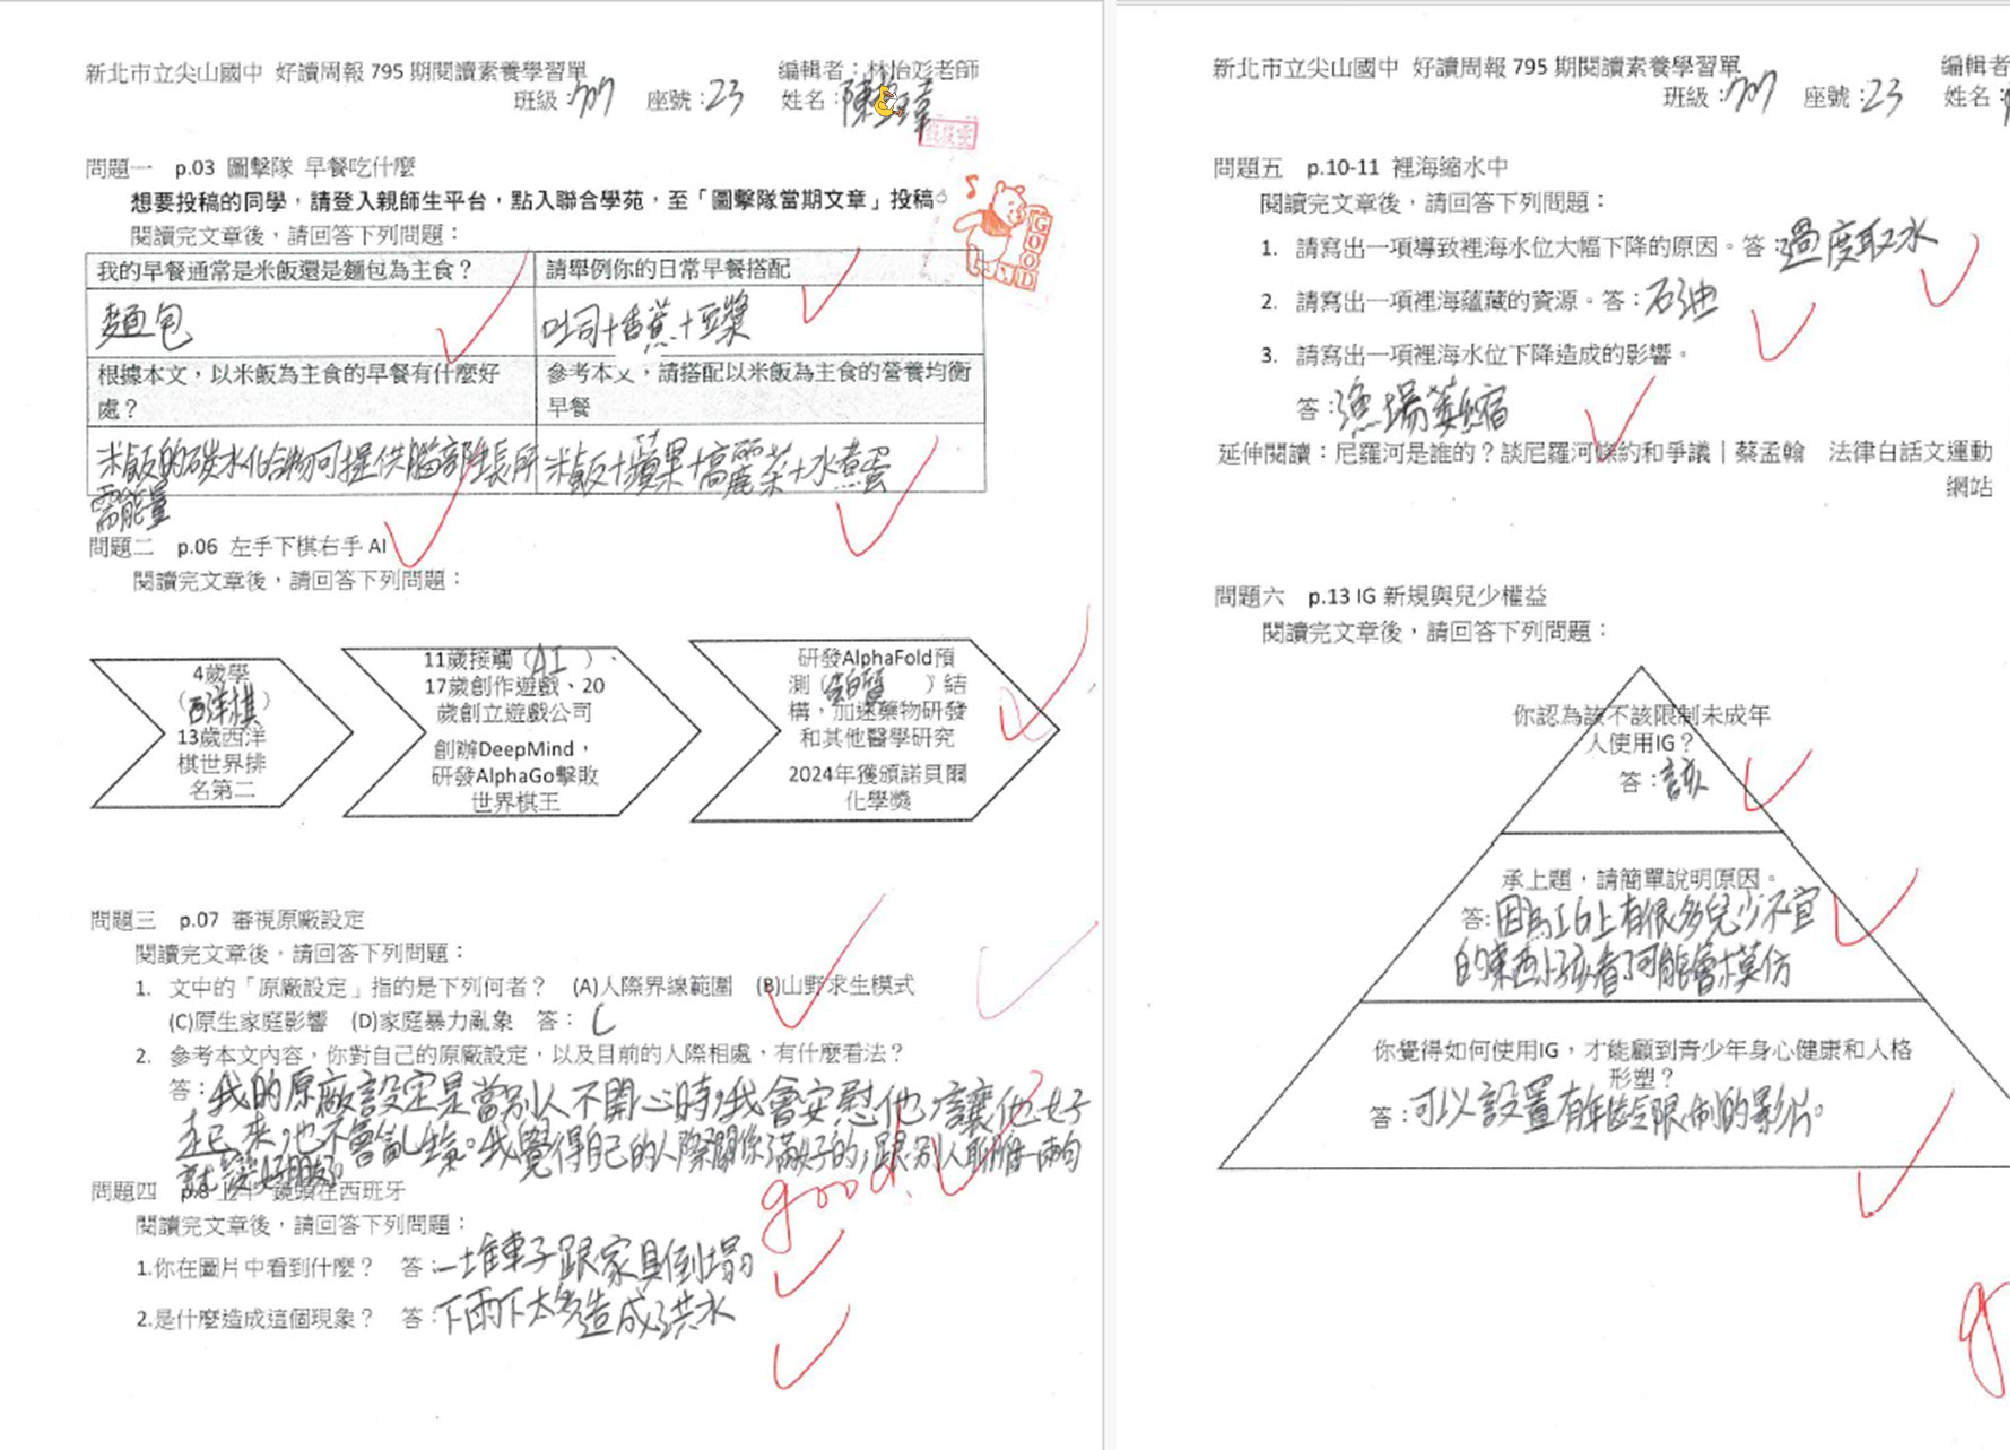 新北市立尖山國中 好讀周報 795 期閱讀素養學習單 編輯者：林怡彣老師
班級：707 座號：23 姓名：陳
問題一 p.03 圖擊隊 早餐吃什麼
想要投稿的同學，請登入親師生平台，點入聯合學苑，至「圖擊隊當期文章」投稿。
閱讀完文章後，請回答下列問題：
我的早餐通常是米飯還是麵包為主食？ 請舉例你的日常早餐搭配
麵包 吐司+香蕉+豆漿
根據本文，以米飯為主食的早餐有什麼好處？ 參考本文，請搭配以米飯為主食的營養均衡早餐
米飯的碳水化合物可提供腦部生長所需能量 米飯+蘋果+高麗菜+水煮蛋
GOOD
問題二 p.06 左手下棋右手 AI
閱讀完文章後，請回答下列問題：
4歲學
（西洋棋）
13歲西洋
棋世界排
名第二
11歲接觸（AI）、
17歲創作遊戲、20
歲創立遊戲公司
創辦DeepMind，
研發AlphaGo擊敗
世界棋王
研發AlphaFold預
測（蛋白質）結
構，加速藥物研發
和其他醫學研究
2024年獲頒諾貝爾
化學獎
問題三 p.07 審視原廠設定
閱讀完文章後，請回答下列問題：
1. 文中的「原廠設定」指的是下列何者？ (A)人際界線範圍 (B)山野求生模式
(C)原生家庭影響 (D)家庭暴力亂象 答：C
2. 參考本文內容，你對自己的原廠設定，以及目前的人際相處，有什麼看法？
答：我的原廠設定是當別人不開心時，我會安慰他，讓他好
起來，也不會亂生氣。我覺得自己的人際關係滿好的，跟別人聊個兩句
就變好朋友。
good.
問題四 p.8 鏡頭在西班牙
閱讀完文章後，請回答下列問題：
1.你在圖片中看到什麼？ 答：一堆車子跟家具倒塌
2.是什麼造成這個現象？ 答：下雨下太多造成洪水
新北市立尖山國中 好讀周報 795 期閱讀素養學習單 編輯者
班級：707 座號：23 姓名：
問題五 p.10-11 裡海縮水中
閱讀完文章後，請回答下列問題：
1. 請寫出一項導致裡海水位大幅下降的原因。答：過度取水
2. 請寫出一項裡海蘊藏的資源。答：石油
3. 請寫出一項裡海水位下降造成的影響。
答：漁場萎縮
延伸閱讀：尼羅河是誰的？談尼羅河條約和爭議｜蔡孟翰 法律白話文運動
網站
問題六 p.13 IG 新規與兒少權益
閱讀完文章後，請回答下列問題：
你認為該不該限制未成年
人使用IG？
答：該
承上題，請簡單說明原因。
答：因為IG上有很多兒少不宜
的東西，小孩看了可能會模仿
你覺得如何使用IG，才能顧到青少年身心健康和人格
形塑？
答：可以設置有年齡限制的影片。